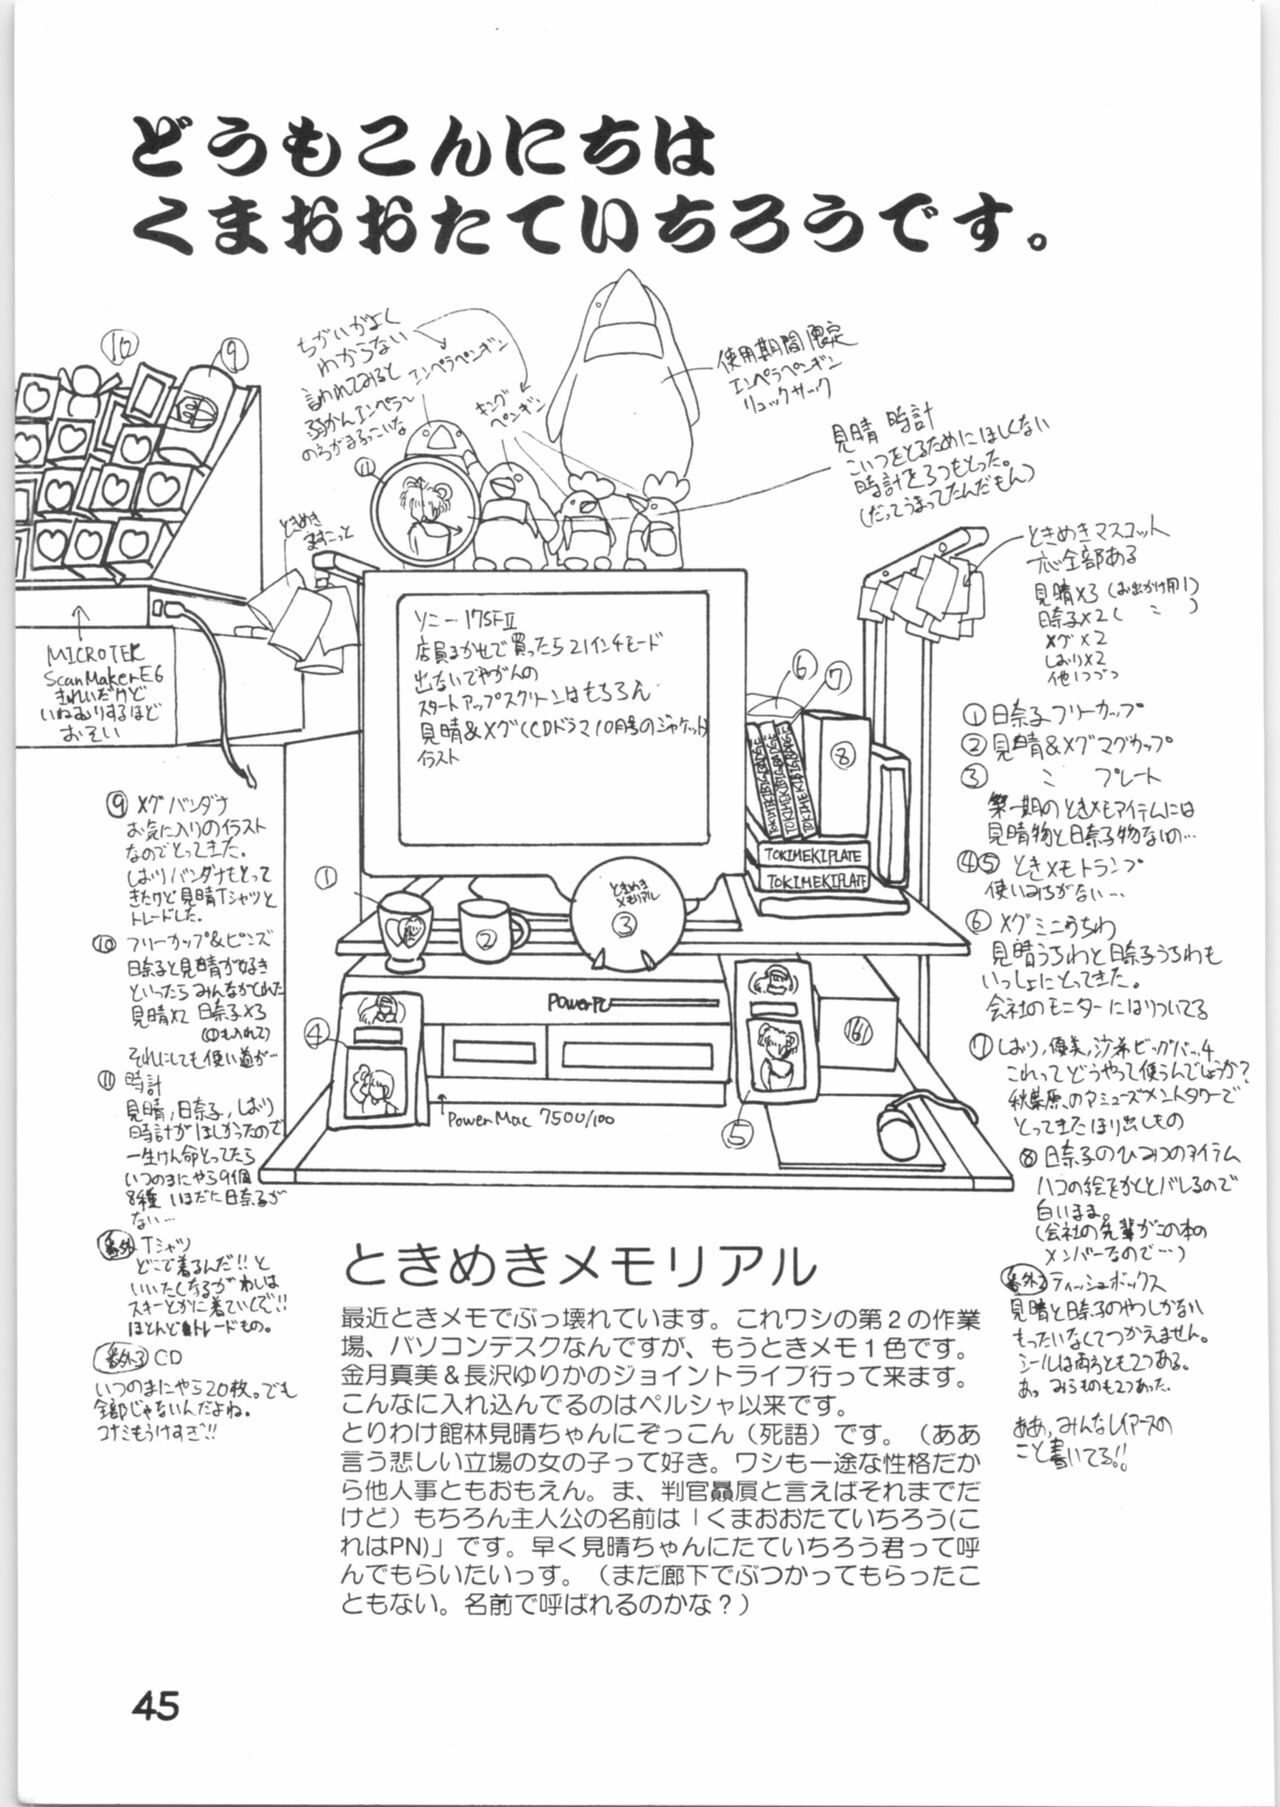 どうもこんにちは
くまおおたていちろうです。
ちがいがよく
わからない
言われてみると
若干エンペラー
のろがまるっこいな
エンペラペンギン
キング
ペンギン
使用期間限定
エンペラペンギン
リュックサック
見晴 時計
こいつをとるためにほしくない
時計を3つもとった。
(だってうまってたんだもん)
⑩
⑨
⑪
ときめき
ますこっと
ときめきマスコット
全部ある
見晴×3(お出かけ用1)
日奈子×2(〃)
メグ×2
しおり×2
他1つづつ
MICROTEK
ScanMakerE6
きれいだけど
いねむりするほど
おそい
ソニー17SFⅡ
店員まかせで買ったら21インチモード
出ないでやがんの
スタートアップスクリーンはもちろん
見晴&メグ(CDドラマ10月号のジャケット)
イラスト
⑥
⑦
⑧
TOKIMEKIPLATE
TOKIMEKIPLATE
①
②
ときめき
メモリアル
③
PowerPC
④
⑤
PowerMac 7500/100
①日奈子フリーカップ
②見晴&メグマグカップ
③ 〃 プレート
第一期のときメモアイテムには
見晴物と日奈子物ないの…
④⑤ ときメモトランプ
使いみちがない…
⑥ メグミニうちわ
見晴うちわと日奈子うちわも
いっしょにとってきた。
会社のモニターにはりついてる
⑦しおり,優美,沙希ビッグバッチ
これってどうやって使うんでしょうか?
秋葉原のアミューズメントタワーで
とってきたほり出しもの
⑧日奈子のひみつのアイテム
ハコの絵をかくとバレるので
白いまま。
(会社の先輩がこの本の
メンバーなので…)
番外2 ティッシュボックス
見晴と日奈子のやつしかない
もったいなくてつかえません。
シールは両ろとも2つある。
あっ みらものも2つあった。
ああ,みんなレイアースの
こと書いてる!!
⑨ メグバンダナ
お気に入りのイラスト
なのでとってきた。
しおりバンダナもとって
きたけど見晴Tシャツと
トレードした。
⑩ フリーカップ&ピンズ
日奈子と見晴が好き
といったらみんながくれた
見晴×2 日奈子×3
(①も入れて)
それにしても使い道が…
⑪ 時計
見晴,日奈子,しおり
時計がほしかったので
一生けん命とってたら
いつのまにやら9個
8種 いまだに日奈子が
ない…
番外 Tシャツ
どこで着るんだ!!と
いいたくなるがわしは
スキーとかに着ていくで!!
ほとんどトレードもの。
番外3 CD
いつのまにやら20枚。でも
全部じゃないんだよね。
コナミもうけすぎ!!
ときめきメモリアル
最近ときメモでぶっ壊れています。これワシの第2の作業
場、パソコンデスクなんですが、もうときメモ1色です。
金月真美&長沢ゆりかのジョイントライブ行って来ます。
こんなに入れ込んでるのはペルシャ以来です。
とりわけ館林見晴ちゃんにぞっこん(死語)です。(ああ
言う悲しい立場の女の子って好き。ワシも一途な性格だか
ら他人事ともおもえん。ま、判官贔屓と言えばそれまでだ
けど)もちろん主人公の名前は「くまおおたていちろう(こ
れはPN)」です。早く見晴ちゃんにたていちろう君って呼
んでもらいたいっす。(まだ廊下でぶつかってもらったこ
ともない。名前で呼ばれるのかな?)
45